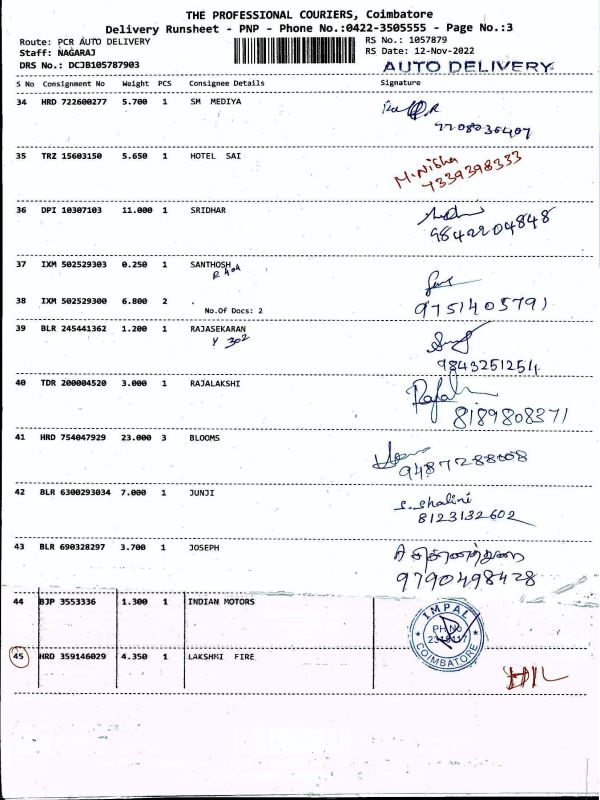 THE PROFESSIONAL COURIERS, Coimbatore
Delivery Runsheet - PNP - Phone No.:0422-3505555 - Page No.:3
Route: PCR AUTO DELIVERY
RS No.: 1057879
Staff: NAGARAJ
RS Date: 12-Nov-2022
DRS No.: DCJB105787903
AUTO DELIVERY
S No Consignment No Weight PCS Consignee Details Signature
34 HRD 722600277 5.700 1 SM MEDIYA
7708036407
35 TRZ 15603150 5.650 1 HOTEL SAI
M. Nisha
7339398333
36 DPI 10307103 11.000 1 SRIDHAR
9842204848
37 IXM 502529303 0.250 1 SANTHOSH
38 IXM 502529300 6.800 2
No.Of Docs: 2
9751405791
39 BLR 245441362 1.200 1 RAJASEKARAN
Y 302
9843251251
40 TDR 200004520 3.000 1 RAJALAKSHI
8189808371
41 HRD 754047929 23.000 3 BLOOMS
9487288008
42 BLR 6300293034 7.000 1 JUNJI
S. Shalini
8123132602
43 BLR 690328297 3.700 1 JOSEPH
9790498428
44 BJP 3553336 1.300 1 INDIAN MOTORS
IMPAL
PH No
COIMBATORE
45 HRD 359146029 4.350 1 LAKSHMI FIRE